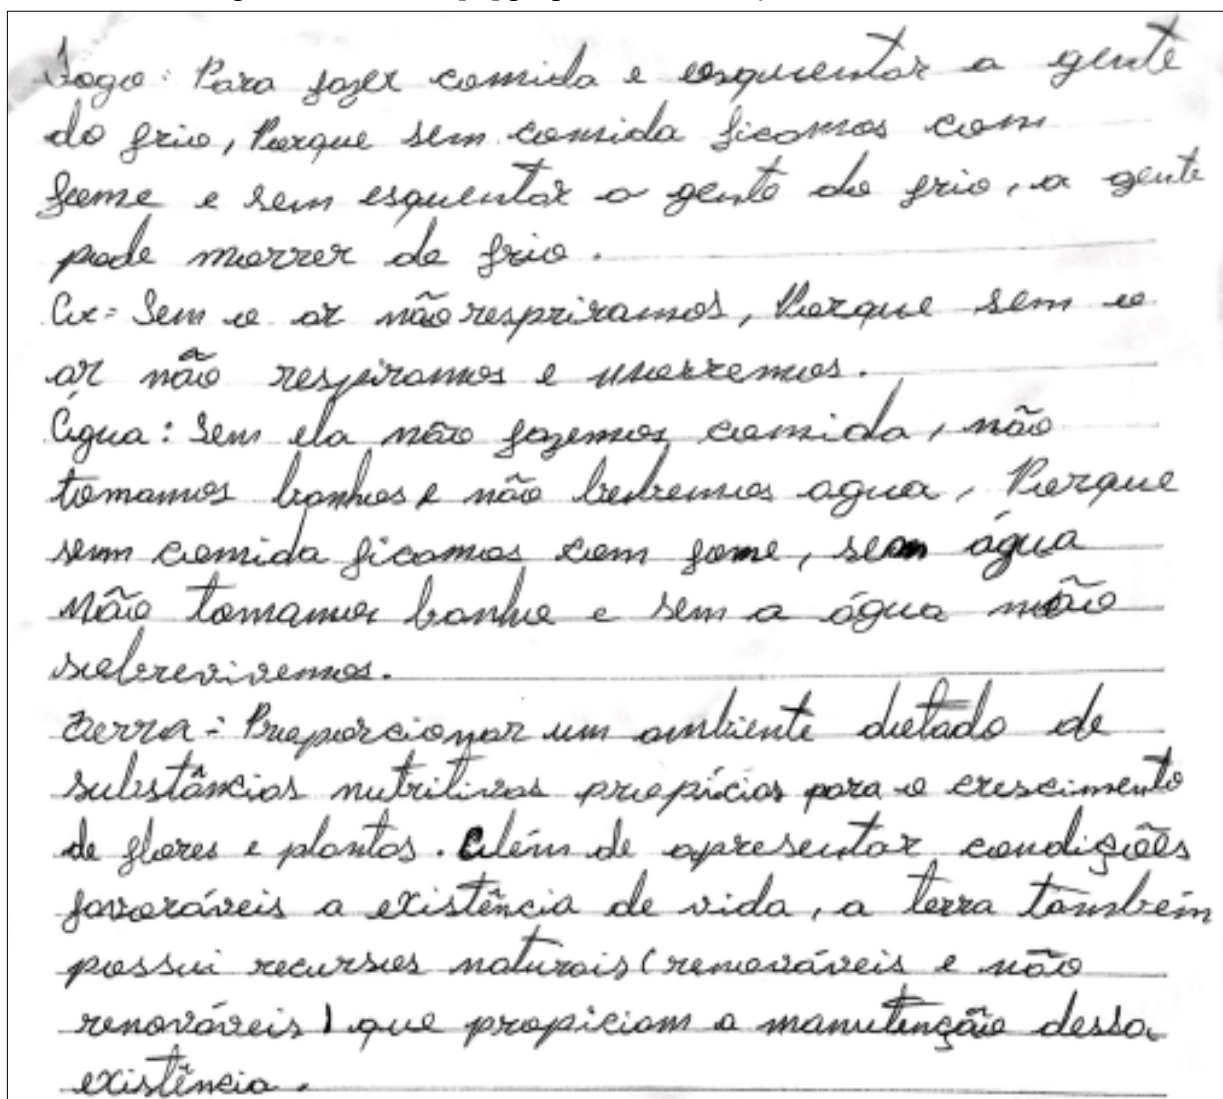 Fogo: Para fazer comida e esquentar a gente
do frio, Porque sem comida ficamos com
fome e sem esquentar a gente do frio, a gente
pode morrer de frio.
Ar= Sem o ar não respriramos, Porque sem o
ar não respiramos e morremos.
Água: Sem ela não fazemos comida, não
tomamos banhos e não bebremos agua, Porque
sem comida ficamos com fome, sem água
Não tomamos banho e sem a água não
sobrevivemos.
Terra: Proporcionar um ambiente dotado de
substâncias nutritivas propícias para o crescimento
de flores e plantas. Além de apresentar condições
favoráveis a existência de vida, a terra também
possui recursos naturais (renováveis e não
renováveis) que propiciam a manutenção dessa
existência.